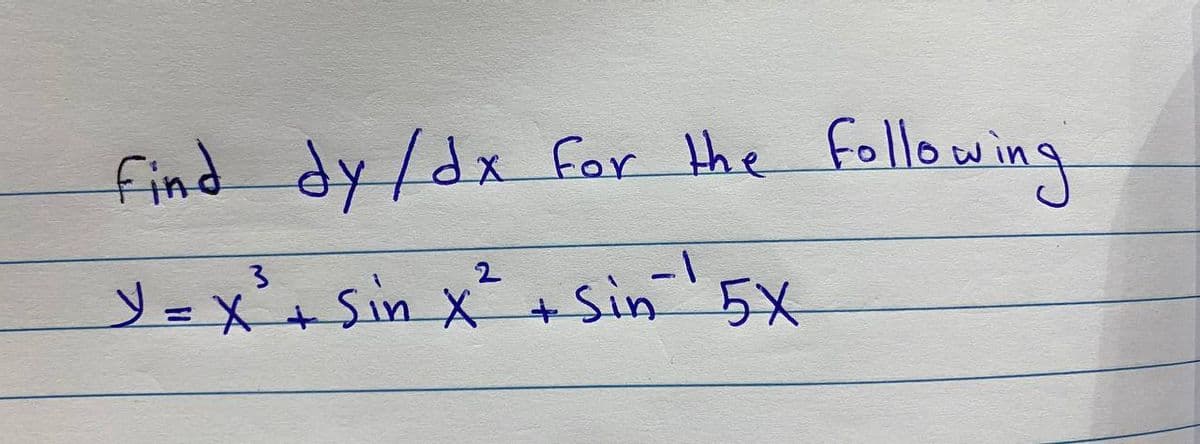 Find dy/dx For the Following
y = x³ + Sin x² + Sin⁻¹ 5x